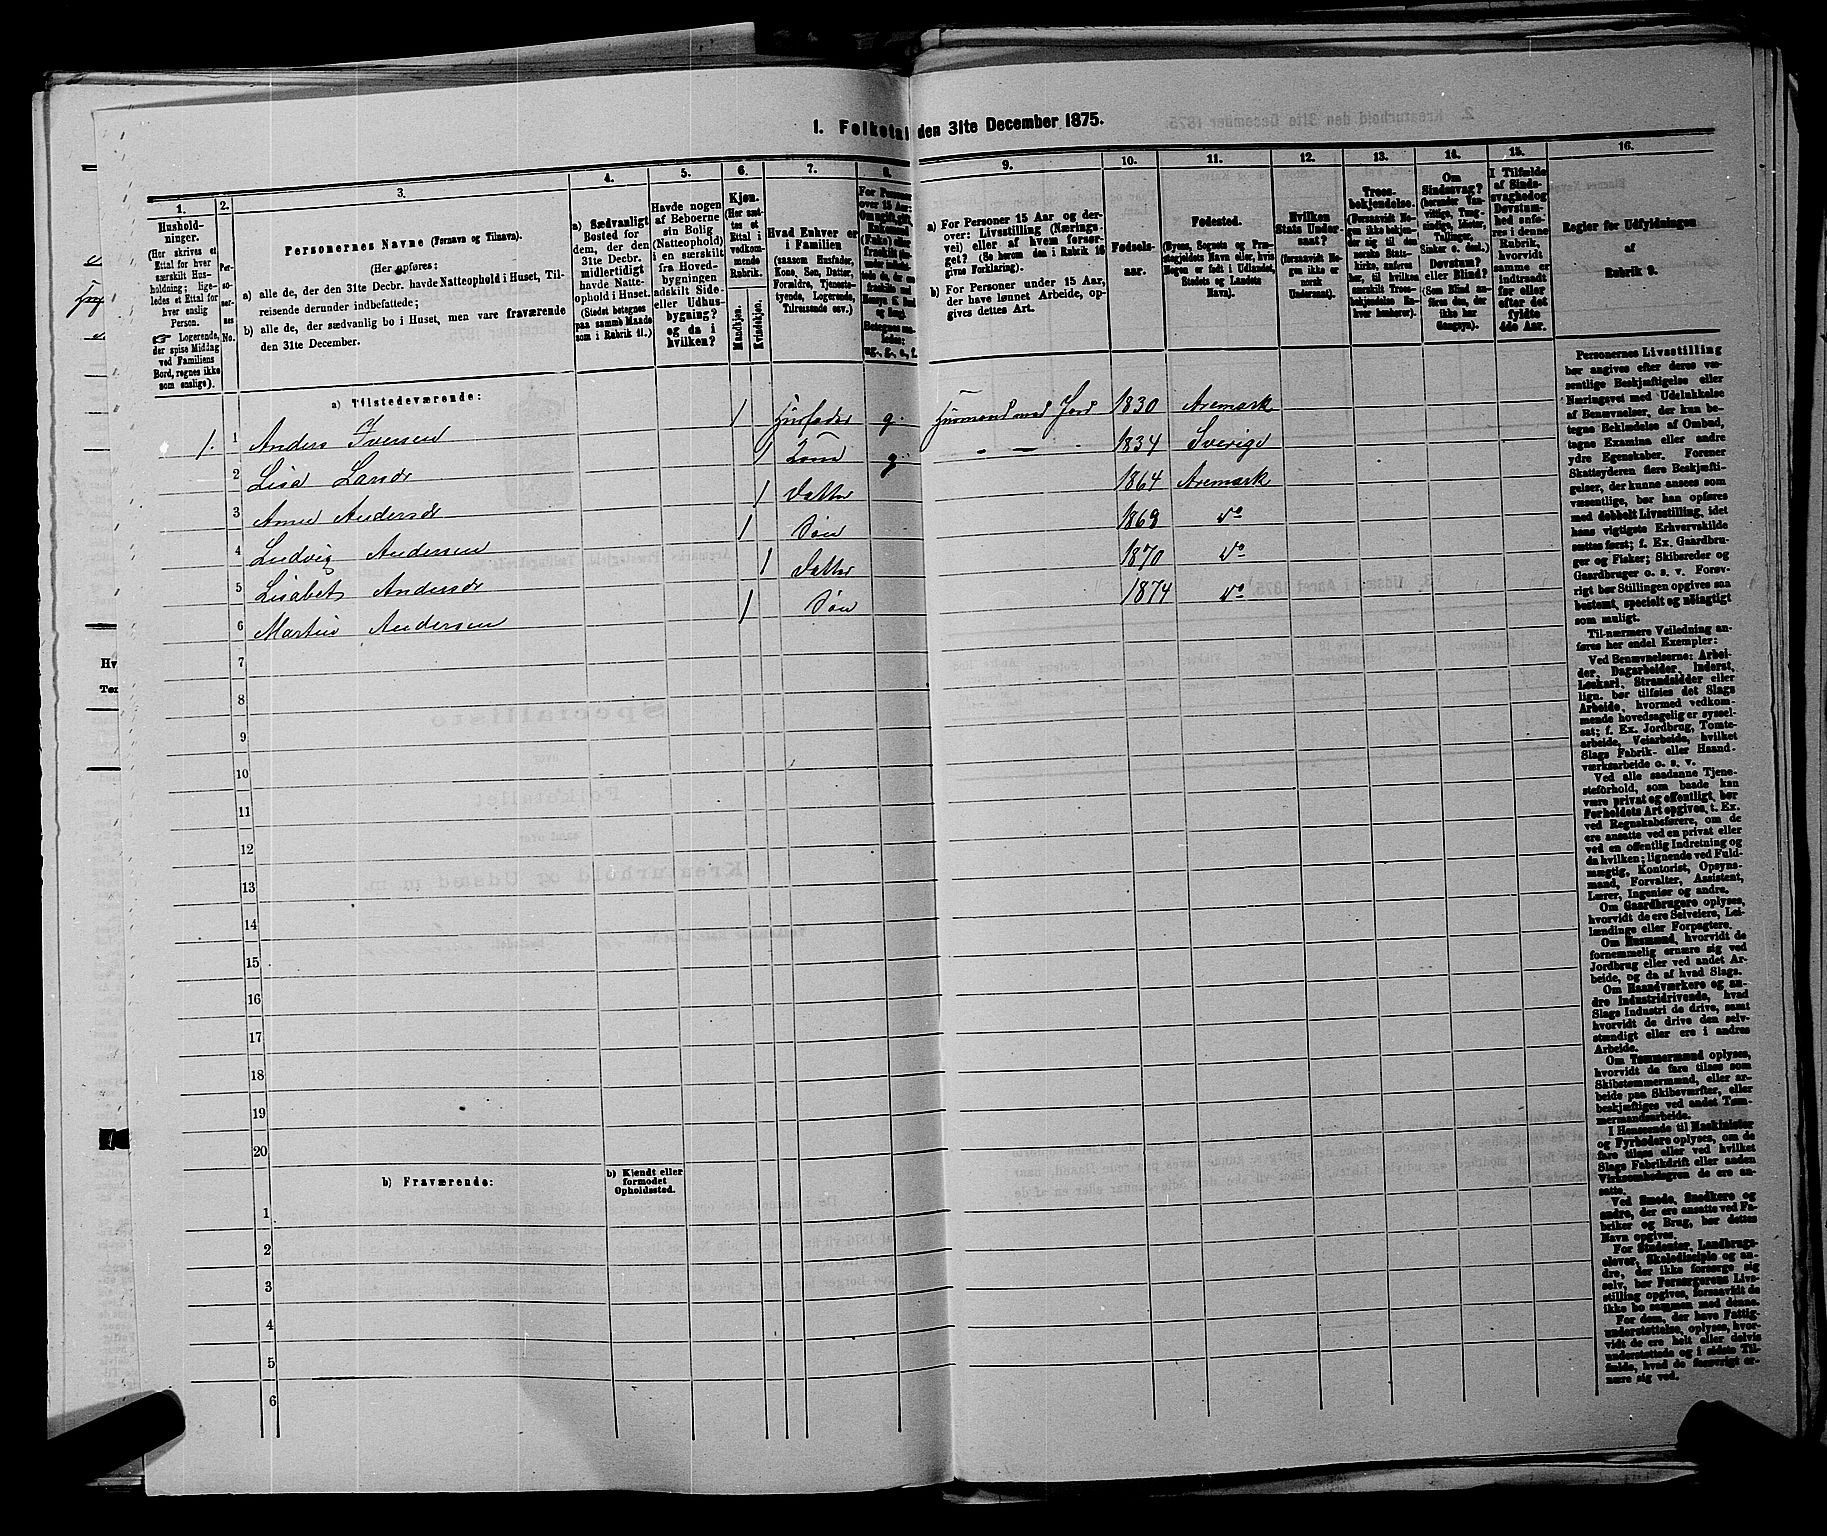 1. Folketal den 31te December 1875.
1. 2. 3. 4. 5. 6. 7. 8. 9. 10. 11. 12. 13. 14. 15. 16.
Husholdninger.
(Her skrives et
Ettal for hver
særskilt Husholdning;
ligeledes et Ettal for
hver enslig
Person.
Logerende,
der spise Middag
ved Familiens
Bord, regnes ikke
som enslige).
Personernes No.
Personernes Navne (Fornavn og Tilnavn).
(Her opføres:
a) alle de, der den 31te Decbr. havde Natteophold i Huset, Tilreisende
derunder indbefattede;
b) alle de, der sædvanlig bo i Huset, men vare fraværende
den 31te December.
a) Sædvanligt
Bosted for
dem, der den
31te Decbr.
midlertidigt
havde Natteophold
i Huset.
(Stedet betegnes
paa samme Maade
som i Rubrik 11.)
Havde nogen
af Beboerne
sin Bolig
(Natteophold)
i en særskilt
fra Hovedbygningen
adskilt Side-
eller Udhusbygning?
og da i
hvilken?
Kjøn.
(Her sættes
et
Ettal i
vedkommende
Rubrik.
Mandkjøn.
Kvindekjøn.
Hvad Enhver er
i Familien
(saasom Husfader,
Kone, Søn, Datter,
Forældre, Tjenestetyende,
Logerende,
Tilreisende osv.)
For Personer
over 15 Aar
ug., g., e., f.
a) For Personer 15 Aar og derover:
Livsstilling (Næringsvei)
eller af hvem forsørget?
(Se herom den i Rubrik 16
givne Forklaring).
b) For Personer under 15 Aar,
der have lønnet Arbeide, opgives
dettes Art.
Fødselsaar.
Fødested.
(Byens, Sognets og Præstegjeldets
Navn eller, hvis
Nogen er født i Udlandet,
Stedets og Landets
Navn).
Hvilken
Stats Undersaat?
(forsaavidt Nogen
ikke er
norsk
Undersaat).
Troesbekjendelse.
(Forsaavidt Nogen
ikke bekjender
sig til den
norske Statskirke,
anføres
her, til hvilken
særskilt Troesbekjendelse
Enhver
henhører).
Om
Sindssvag?
(herunder Vanvittige,
Tungsindige,
Idioter,
Tullinger,
Sinker o. desl.)
Døvstum?
eller Blind?
(Som Blind anføres
den, der
ikke har
Gangsyn).
I Tilfælde
af Sindssvaghed og
Døvstumhed
anføres
i denne
Rubrik,
hvorvidt
samme er
indtraadt
før eller
efter det
fyldte
4de Aar.
Regler for Udfyldningen
af
Rubrik 9.
a) Tilstedeværende:
1. 1 Anders Iversen 1 Husfader g. Husmand med Jord 1830 Aremark
2 Lisa Larsdr 1 Kone g. — — 1834 Sverige
3 Anne Andersdr 1 Datter 1864 Aremark
4 Ludvig Andersen 1 Søn 1869 do
5 Lisabet Andersdr 1 Datter 1870 do
6 Martin Andersen 1 Søn 1874 do
7
8
9
10
11
12
13
14
15
16
17
18
19
20
b) Fraværende: b) Kjendt eller
formodet
Opholdssted.
1
2
3
4
5
6
Personernes Livsstilling
bør angives efter deres væsentlige
Beskjæftigelse eller
Næringsvei med Udelukkelse
af Benævnelser, der kun betegne
Beklædelse af Ombud,
tagne Examina eller andre
ydre Egenskaber. Forener
Skatteyderen flere Beskjæftigelser,
der kunne ansees som
væsentlige, bør han opføres
med dobbelt Livsstilling, idet
hans vigtigste Erhvervskilde
sættes først; f. Ex. Gaardbruger
og Fisker; Skibsreder og
Gaardbruger o. s. v. Forøvrigt
bør Stillingen opgives saa
bestemt, specielt og nøiagtigt
som muligt.
Til nærmere Veiledning anføres
her endel Exempler:
Ved Benævnelserne: Arbeider,
Dagarbeider, Inderst,
Løskarl, Strandsidder eller
lign. bør tilføies det Slags
Arbeide, hvormed vedkommende
hovedsagelig er sysselsat;
f. Ex. Jordbrug, Tomtearbeide,
Veiarbeide, hvilket
Slags Fabrik- eller Haandværksarbeide
o. s. v.
Ved alle saadanne Tjenesteforhold,
som baade kan
være privat og offentligt, bør
Forholdets Art opgives, t. Ex.
ved Regnskabsførere, om de
ere ansatte ved en privat eller
ved en offentlig Indretning og
da hvilken; lignende ved Fuldmægtig,
Kontorist, Opsynsmand,
Forvalter, Assistent,
Lærer, Ingeniør og andre.
Om Gaardbrugere oplyses,
hvorvidt de ere Selveiere, Leilændinge
eller Forpagtere.
Om Husmænd, hvorvidt de
fornemmelig ernære sig ved
Jordbrug eller ved andet Arbeide,
og da af hvad Slags.
Om Haandværkere og andre
Industridrivende, hvad
Slags Industri de drive, samt
hvorvidt de drive den selvstændigt
eller ere i andres
Arbeide.
Om Tømmermænd oplyses,
hvorvidt de fare tilsøs som
Skibstømmermænd, eller arbeide
paa Skibsværfter, eller
beskjæftiges ved andet Tømmermandsarbeide.
I Henseende til Maskinister
og Fyrbødere oplyses, om de
fare tilsøs eller ved hvilket
Slags Fabrikdrift eller anden
Virksomhedsgren de ere ansatte.
Ved Smede, Snedkere og
andre, der ere ansatte ved Fabriker
og Brug, bør dettes
Navn opgives.
For Studenter, Landbrugselever,
Skoledisciple og andre,
der ikke forsørge sig
selv, bør Forsørgerens Livsstilling
opgives, forsaavidt de
ikke bo sammen med denne.
For dem, der have Fattigunderstøttelse,
oplyses, hvorvidt
de ere helt eller delvis
understøttede og i sidste Tilfælde,
hvad de forøvrigt ernære
sig ved.